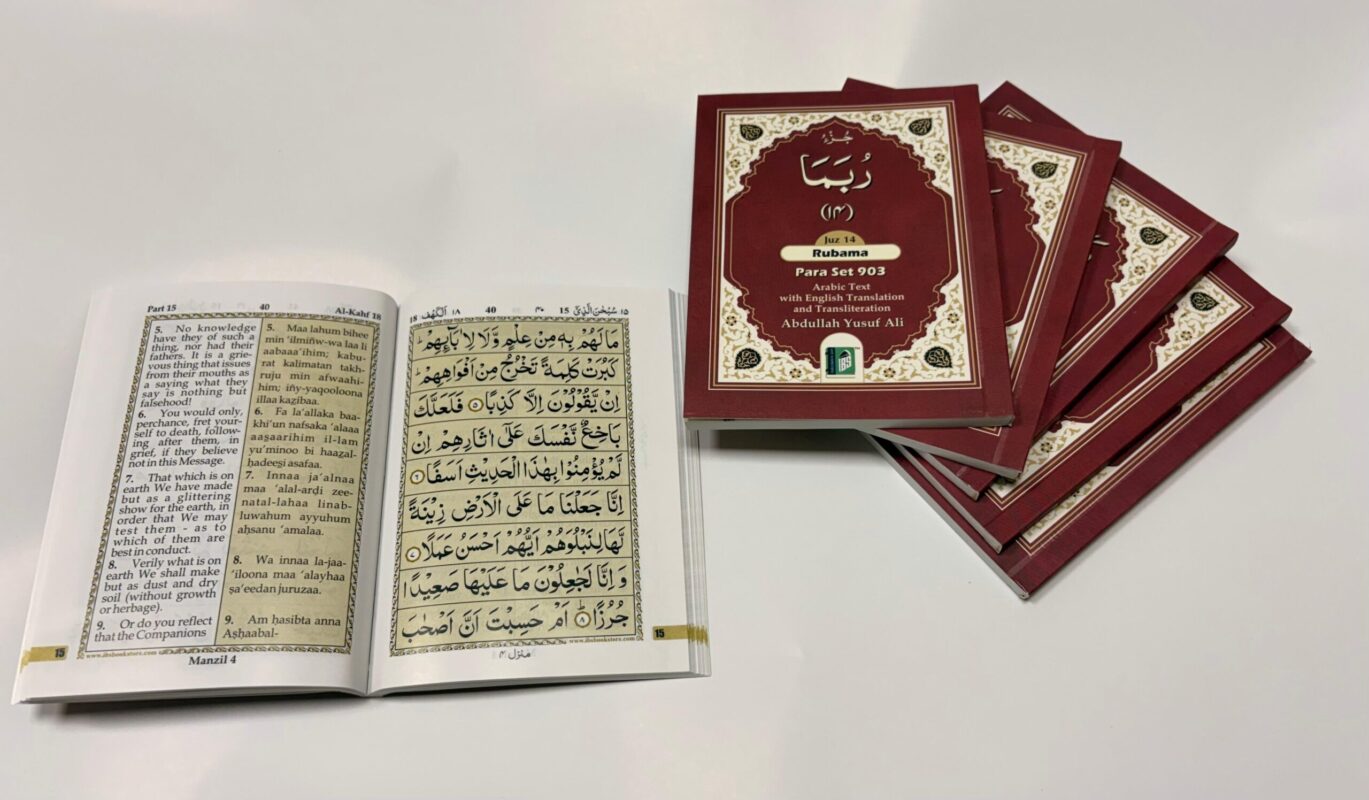 Part 15 40 Al-Kahf 18
5. No knowledge
have they of such a
thing, nor had their
fathers. It is a grie-
vous thing that issues
from their mouths as
a saying what they
say is nothing but
falsehood!
6. You would only,
perchance, fret your-
self to death, follow-
ing after them, in
grief, if they believe
not in this Message.
7. That which is on
earth We have made
but as a glittering
show for the earth, in
order that We may
test them - as to
which of them are
best in conduct.
8. Verily what is on
earth We shall make
but as dust and dry
soil (without growth
or herbage).
9. Or do you reflect
that the Companions
5. Maa lahum bihee
min 'ilmiñw-wa laa li
aabaaa'ihim; kabu-
rat kalimatan takh-
ruju min afwaahi-
him; iñy-yaqooloona
illaa kaẓibaa.
6. Fa la'allaka baa-
khi'un nafsaka 'alaaa
aaṣaarihim il-lam
yu'minoo bi haaẓal-
ḥadeeṣi asafaa.
7. Innaa ja'alnaa
maa 'alal-arḍi zee-
natal-lahaa linab-
luwahum ayyuhum
aḥsanu 'amalaa.
8. Wa innaa la-jaa-
'iloona maa 'alayhaa
ṣa'eedan juruzaa.
9. Am ḥasibta anna
Aṣḥaabal-
15 www.ibsbookstore.com
Manzil 4
18 اَلْكَهْف ١٨ 40 ٤٠ 15 سُبْحٰنَ الَّذِيْٓ ١٥
مَا لَهُمْ بِهٖ مِنْ عِلْمٍ وَّلَا لِاٰبَآئِهِمْ ؕ
كَبُرَتْ كَلِمَةً تَخْرُجُ مِنْ اَفْوَاهِهِمْ ؕ
اِنْ يَّقُوْلُوْنَ اِلَّا كَذِبًا ۵ فَلَعَلَّكَ
بَاخِعٌ نَّفْسَكَ عَلٰٓى اٰثَارِهِمْ اِنْ
لَّمْ يُؤْمِنُوْا بِهٰذَا الْحَدِيْثِ اَسَفًا ۶
اِنَّا جَعَلْنَا مَا عَلَى الْاَرْضِ زِيْنَةً
لَّهَا لِنَبْلُوَهُمْ اَيُّهُمْ اَحْسَنُ عَمَلًا ۷
وَ اِنَّا لَجٰعِلُوْنَ مَا عَلَيْهَا صَعِيْدًا
جُرُزًا ؕ ۸ اَمْ حَسِبْتَ اَنَّ اَصْحٰبَ
www.ibsbookstore.com 15
مَنْزِل ۴
جُزْءُ
رُبَمَا
(۱۴)
Juz 14
Rubama
Para Set 903
Arabic Text
with English Translation
and Transliteration
Abdullah Yusuf Ali
IBS